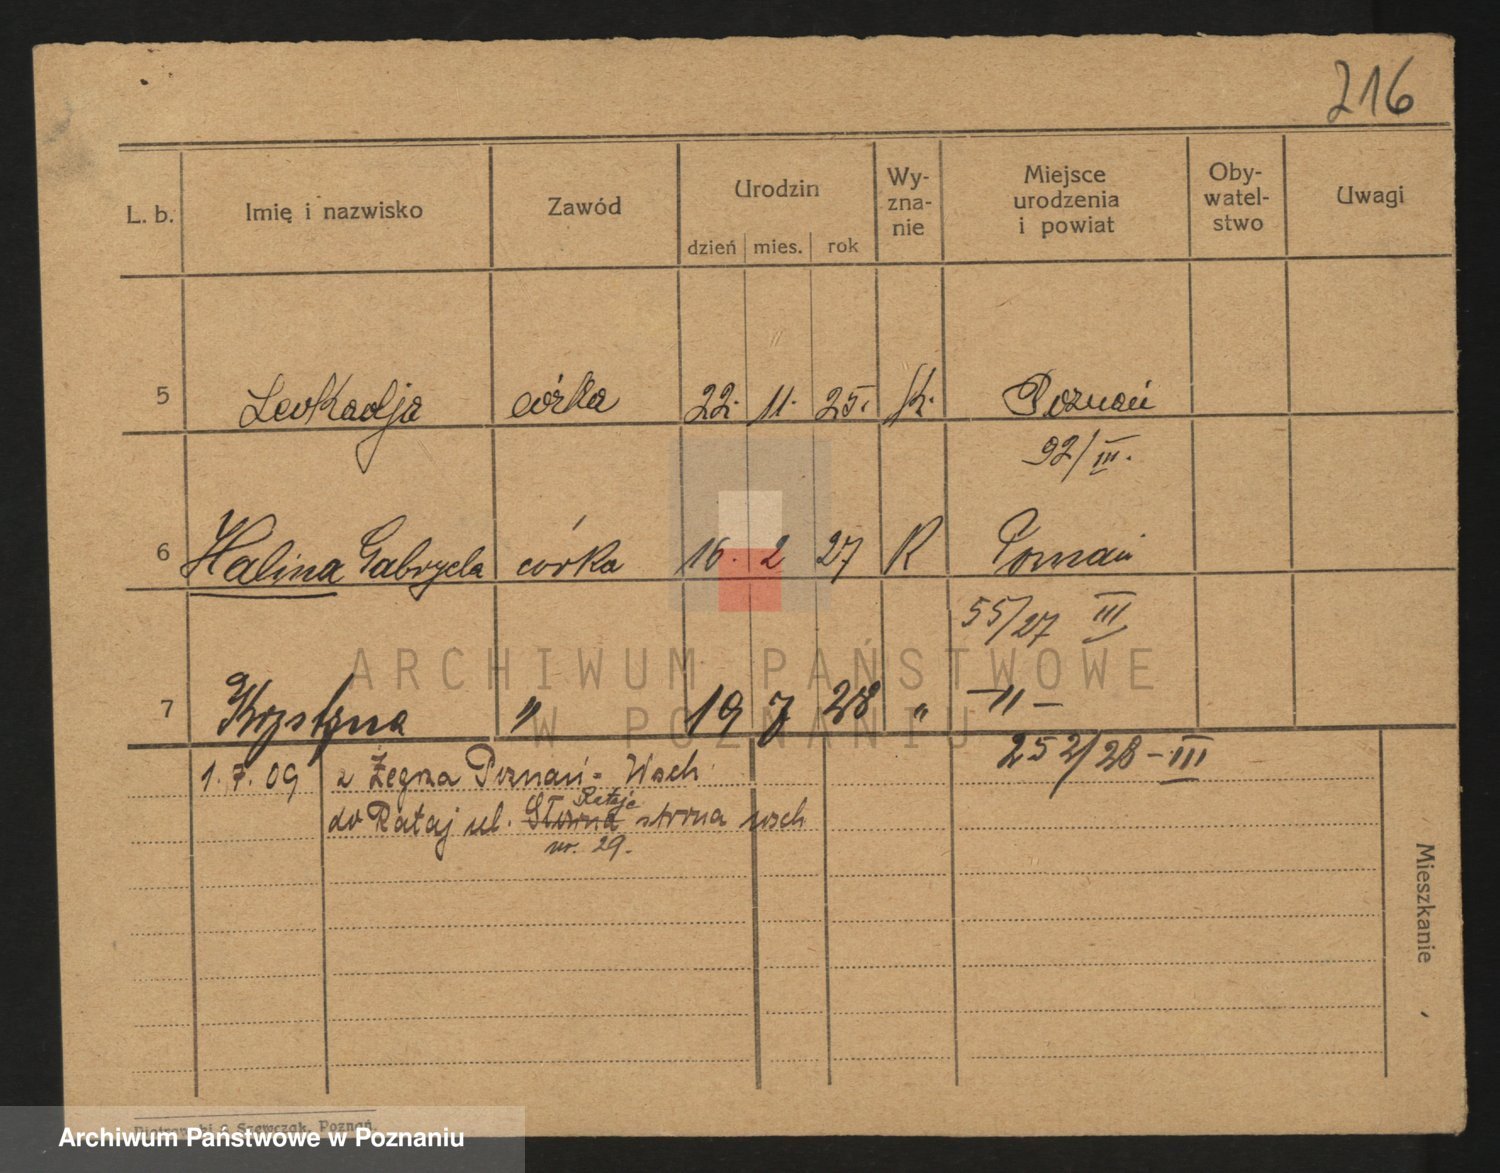 216
L. b. Imię i nazwisko Zawód Urodzin dzień mies. rok Wy-zna-nie Miejsce urodzenia i powiat Oby-watel-stwo Uwagi
5 Leokadja córka 22. 11. 25. rk. Poznań
92/III.
6 Halina Gabryela córka 16. 2 27 R Poznań
55/27 III
7 Krystyna " 19 7 28 " -"-
252/28-III
1.7.09 z Żegrza Poznań-Wsch
Rataje
do Rataj ul. Główna strona wsch
nr. 29.
Mieszkanie
ARCHIWUM PAŃSTWOWE
W POZNANIU
Szewczak, Poznań.
Archiwum Państwowe w Poznaniu